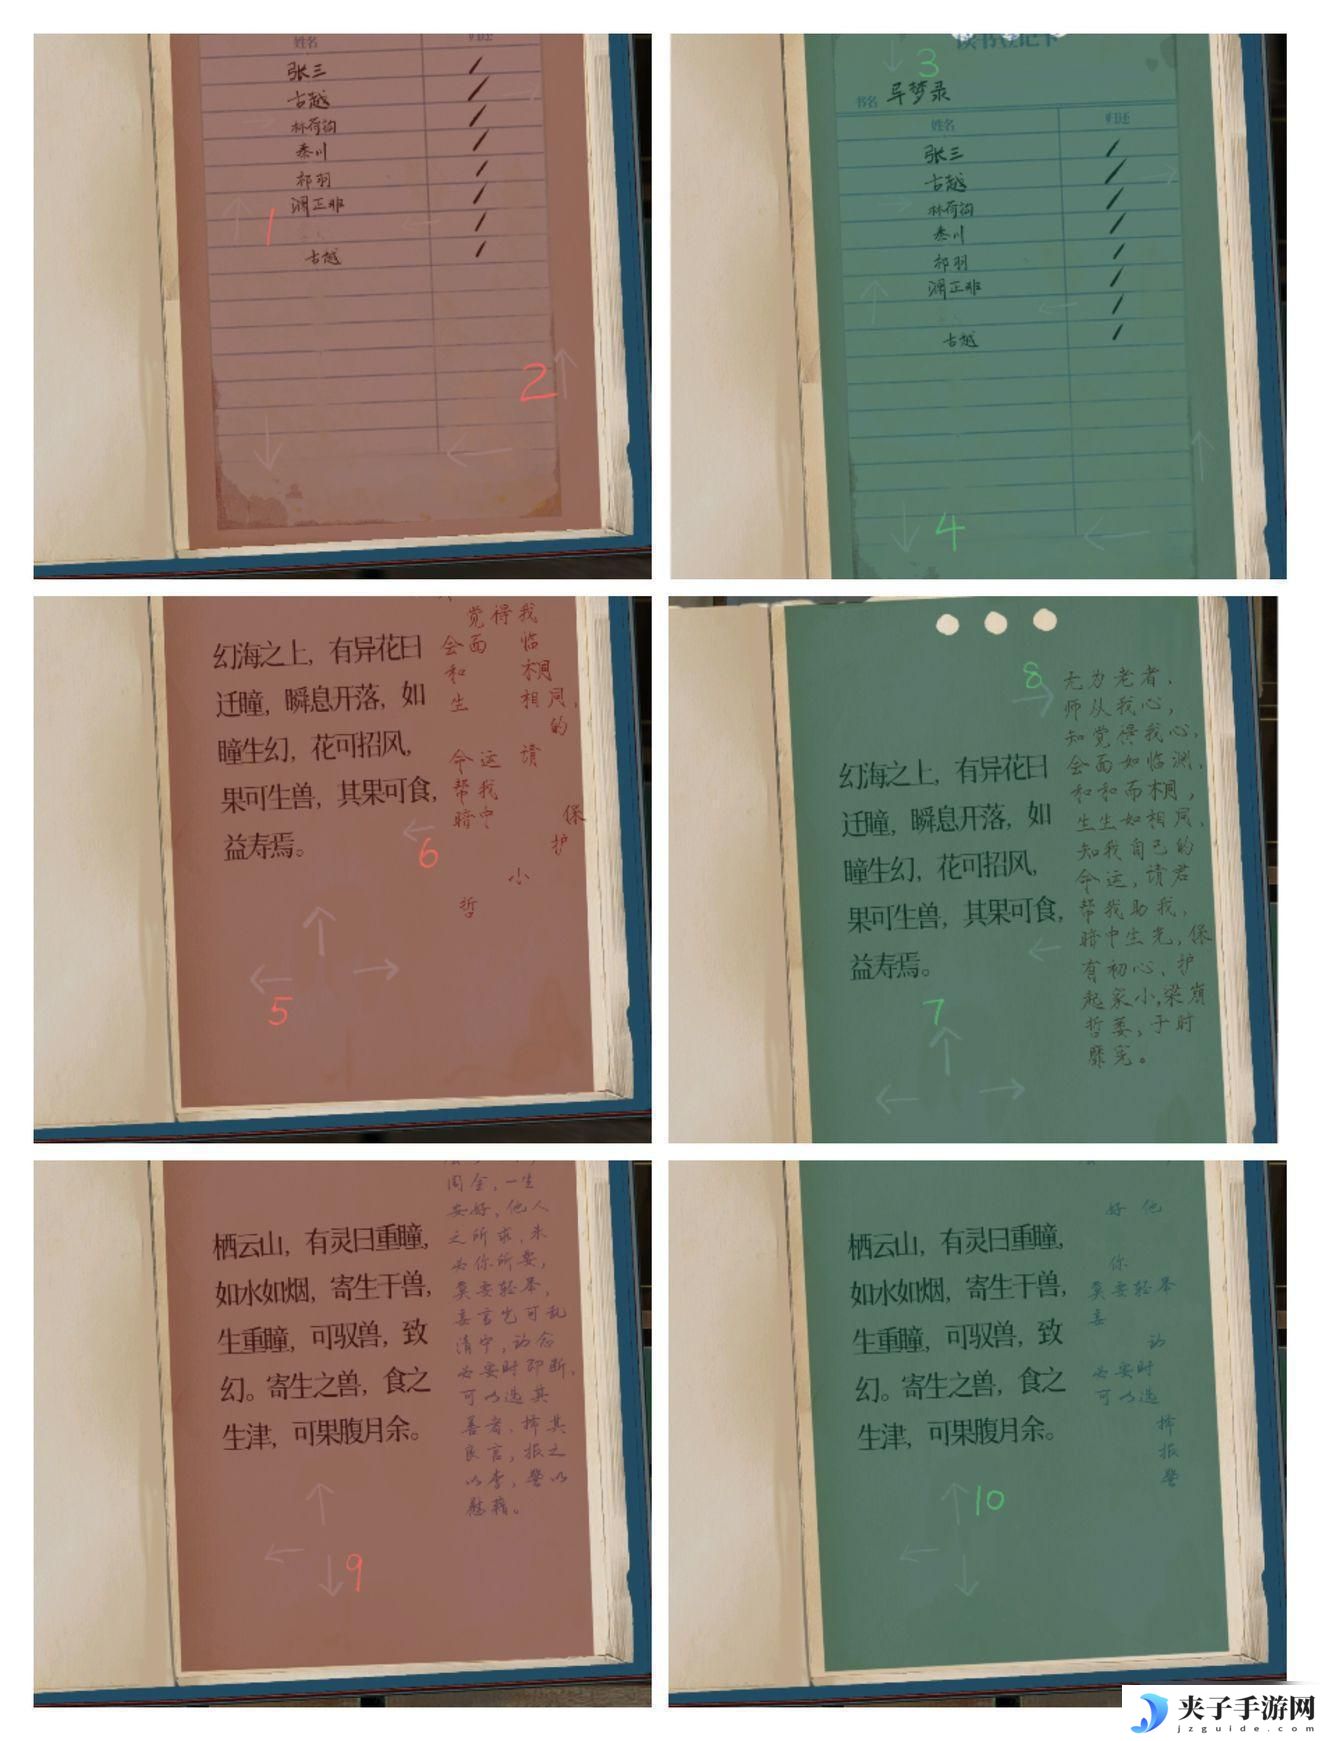 姓名 归还
张三
古越
林荷钩
秦川
祁羽
渭正非
古越
1
2
读书登记卡
3
书名 异梦录
姓名 归还
张三
古越
林荷钩
秦川
祁羽
渭正非
古越
4
觉得我
会面 临
和 桐
生 相同,
的
令运 请
帮我
暗中 保
护
小
哲
幻海之上,有异花曰
迁瞳,瞬息开落,如
瞳生幻,花可招风,
果可生兽,其果可食,
益寿焉。
6
5
8
无为老者,
师从我心,
知觉得我心,
会面如临渊,
和和而桐,
生生如相同,
知我自己的
令运,请君
帮我助我,
暗中生光,保
有初心、护
起家小,梁崩
哲萎,于时
靡宪。
幻海之上,有异花曰
迁瞳,瞬息开落,如
瞳生幻,花可招风,
果可生兽,其果可食,
益寿焉。
7
周全,一生
安好,他人
之所求,未
必你所要,
莫要轻举,
妄言岂可乱
清宁,动念
必要时即断,
可以选其
善者,择其
良言,报之
以李,警以
慰藉。
栖云山,有灵曰重瞳,
如水如烟,寄生于兽,
生重瞳,可驭兽,致
幻。寄生之兽,食之
生津,可果腹月余。
9
好 他
你
莫要轻举
妄
动
必要时
可以选
择
报
警
栖云山,有灵曰重瞳,
如水如烟,寄生于兽,
生重瞳,可驭兽,致
幻。寄生之兽,食之
生津,可果腹月余。
10
夹子手游网
jzguide.com